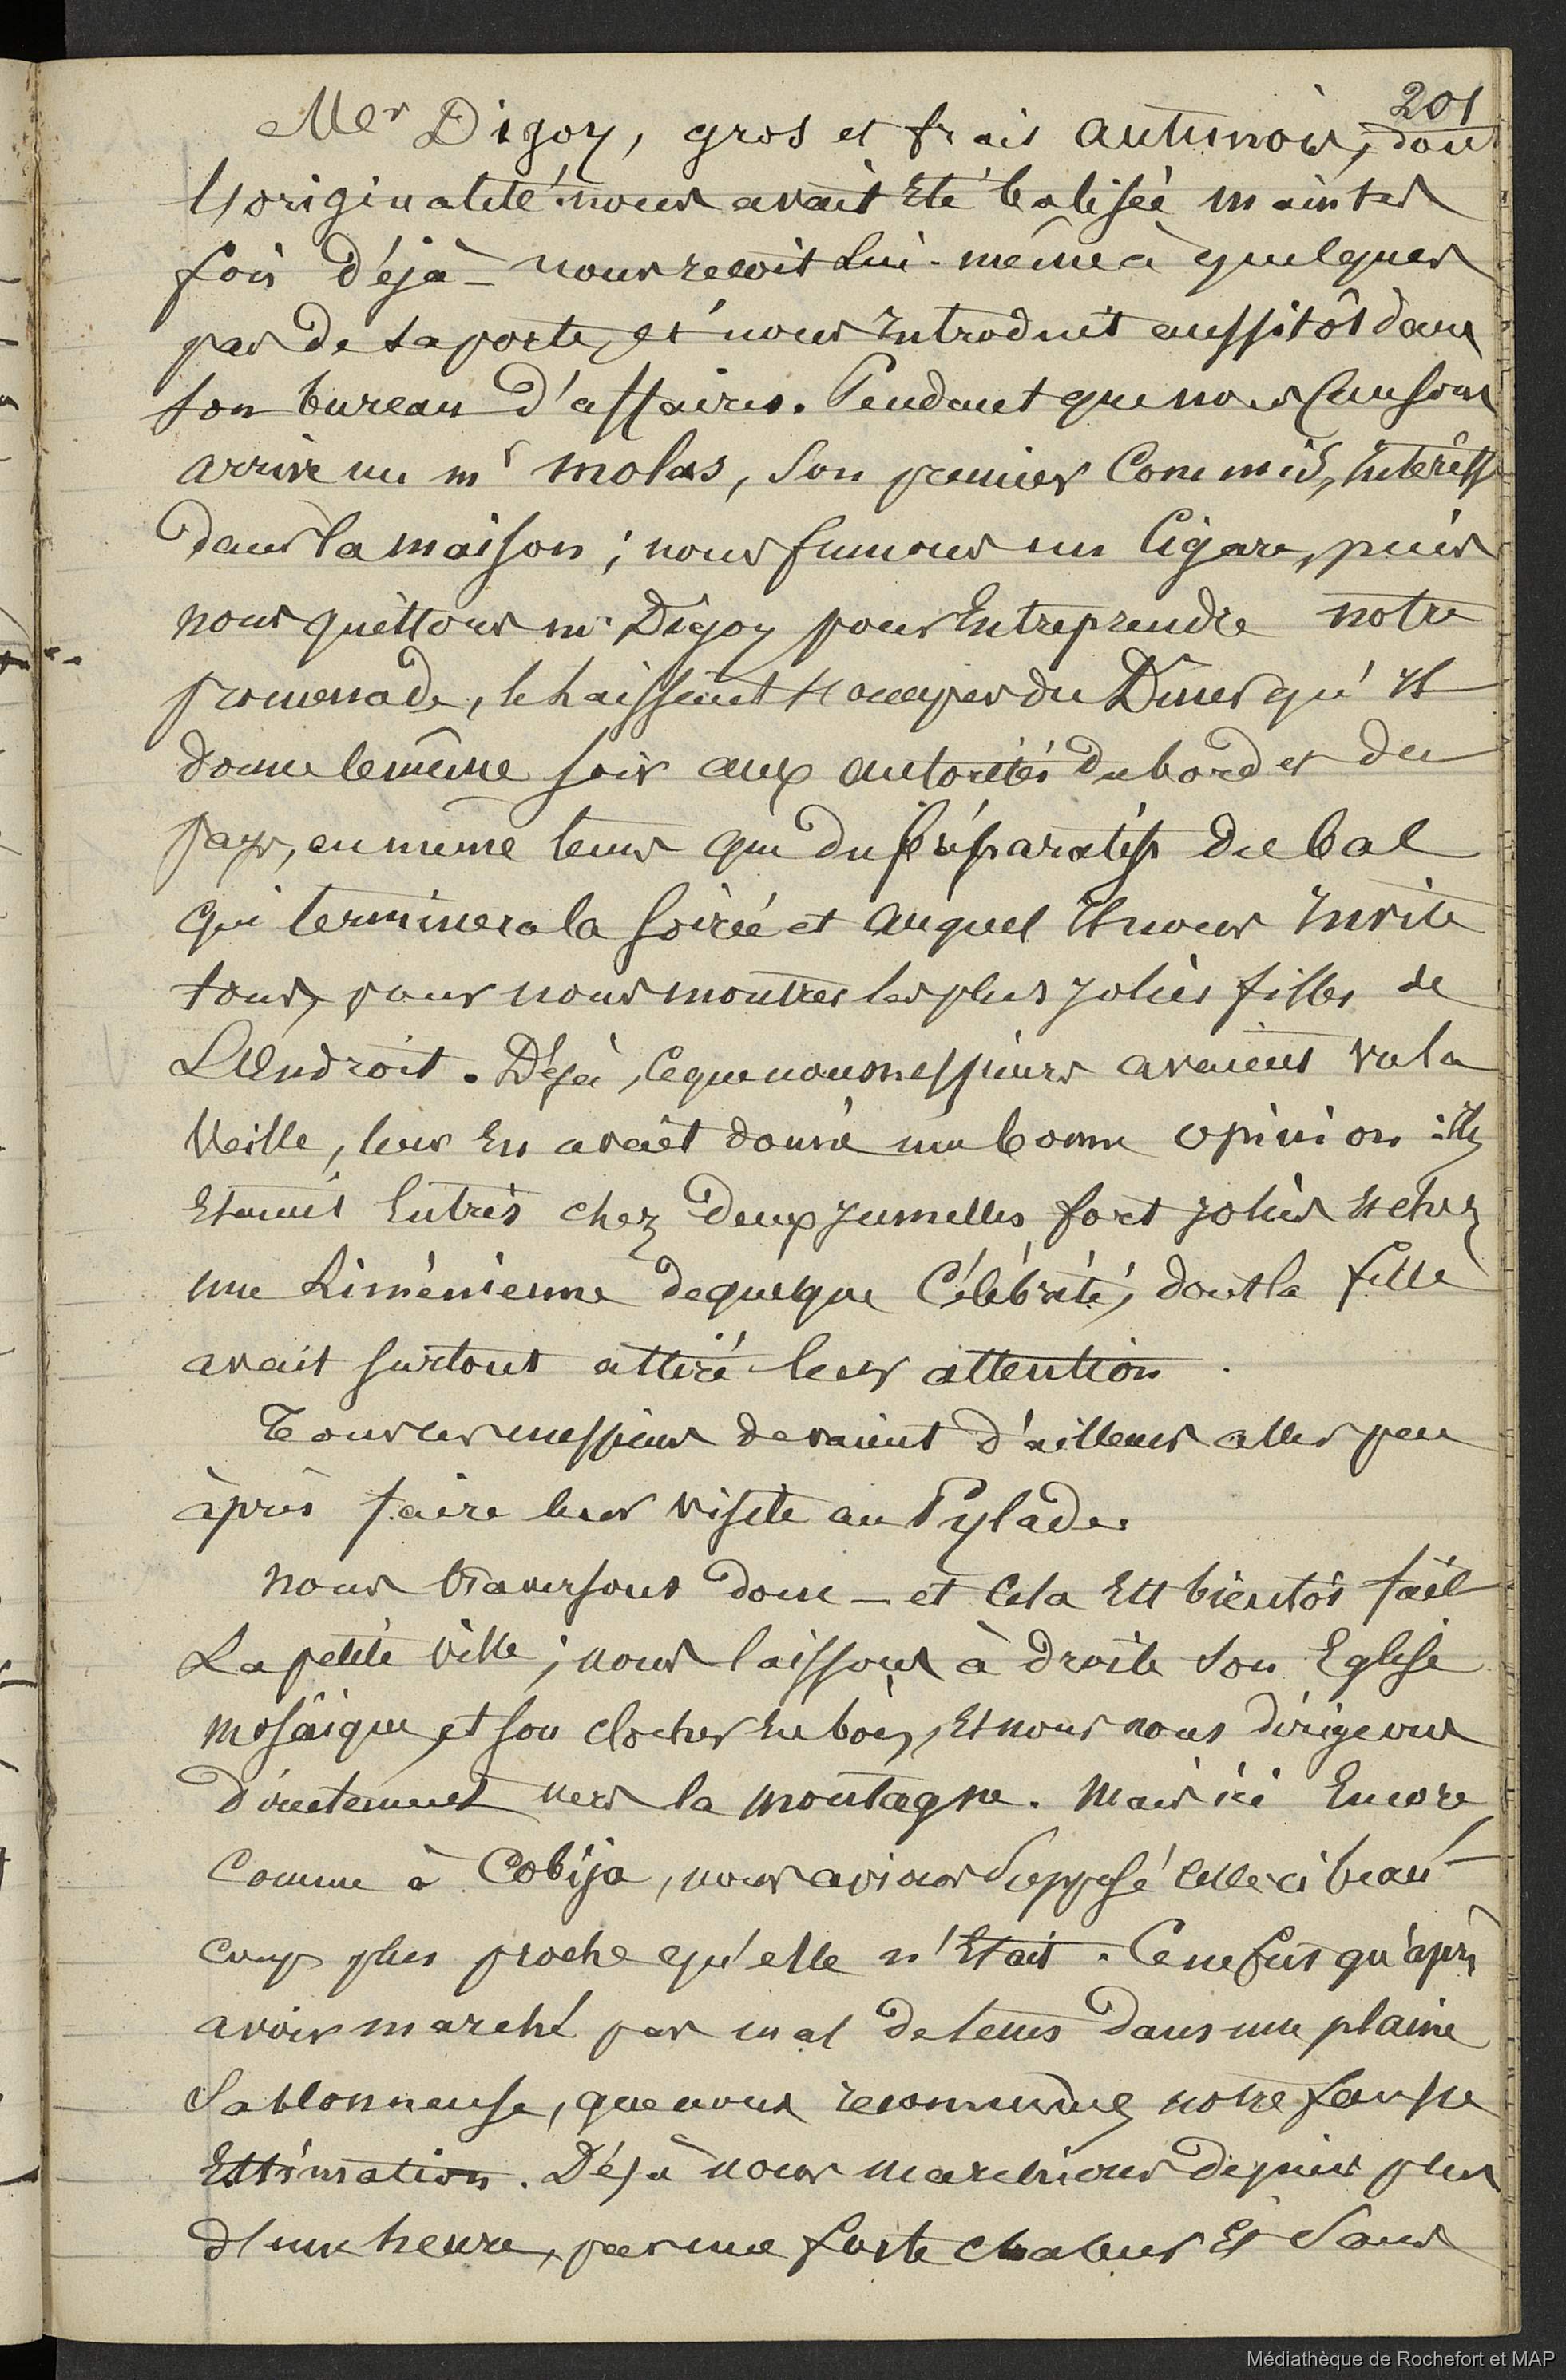 201
Mer Digoy, gros et frais dont
l'originalité nous avait été maintes
fois déjà - nous reçoit lui-même à quelques
pas de sa porte, et nous introduit aussitôt dans
son bureau d'affaires. Pendant que nous causons
arrive un mr Molas, son premier commis, intéressé
dans la maison ; nous fumons un cigare, puis
nous quittons mr Digoy pour entreprendre notre
promenade, le laissant s'occuper du Dîner qu'il
donne le même soir aux autorités du bord et du
pays, en même tems que du préparatifs du bal
qui terminera la soirée et auquel il nous invite
tous, pour nous montrer les plus jolies filles de
L'Endroit. Déjà, ce que nous messieurs avaient vu la
veille, leur en avait donné une bonne opinion : ils
Etaient entrés chez deux jumelles, fort jolies et chez
une Liménienne de quelque célébrité, dont la fille
avait surtout attiré leur attention.
Tous ces messieurs devaient d'ailleurs aller peu
après faire leur visite au Pylade.
nous traversons donc - et cela Est bientôt fait
La petite ville ; nous laissons à droite son Eglise
mosaïque, et son clocher en bois, et nous nous dirigeons
directement vers la montagne. Mais ici Encore,
Comme à Cobija, nous avions supposé celle-ci beau-
coup plus proche qu'elle n'Etait. Ce ne fut qu'après
avoir marché pas mal de tems dans une plaine
Sablonneuse, que nous reconnûmes notre fausse
Estimation. Déjà nous marchions depuis plus
d'une heure, par une forte chaleur Et Sans
Médiathèque de Rochefort et MAP